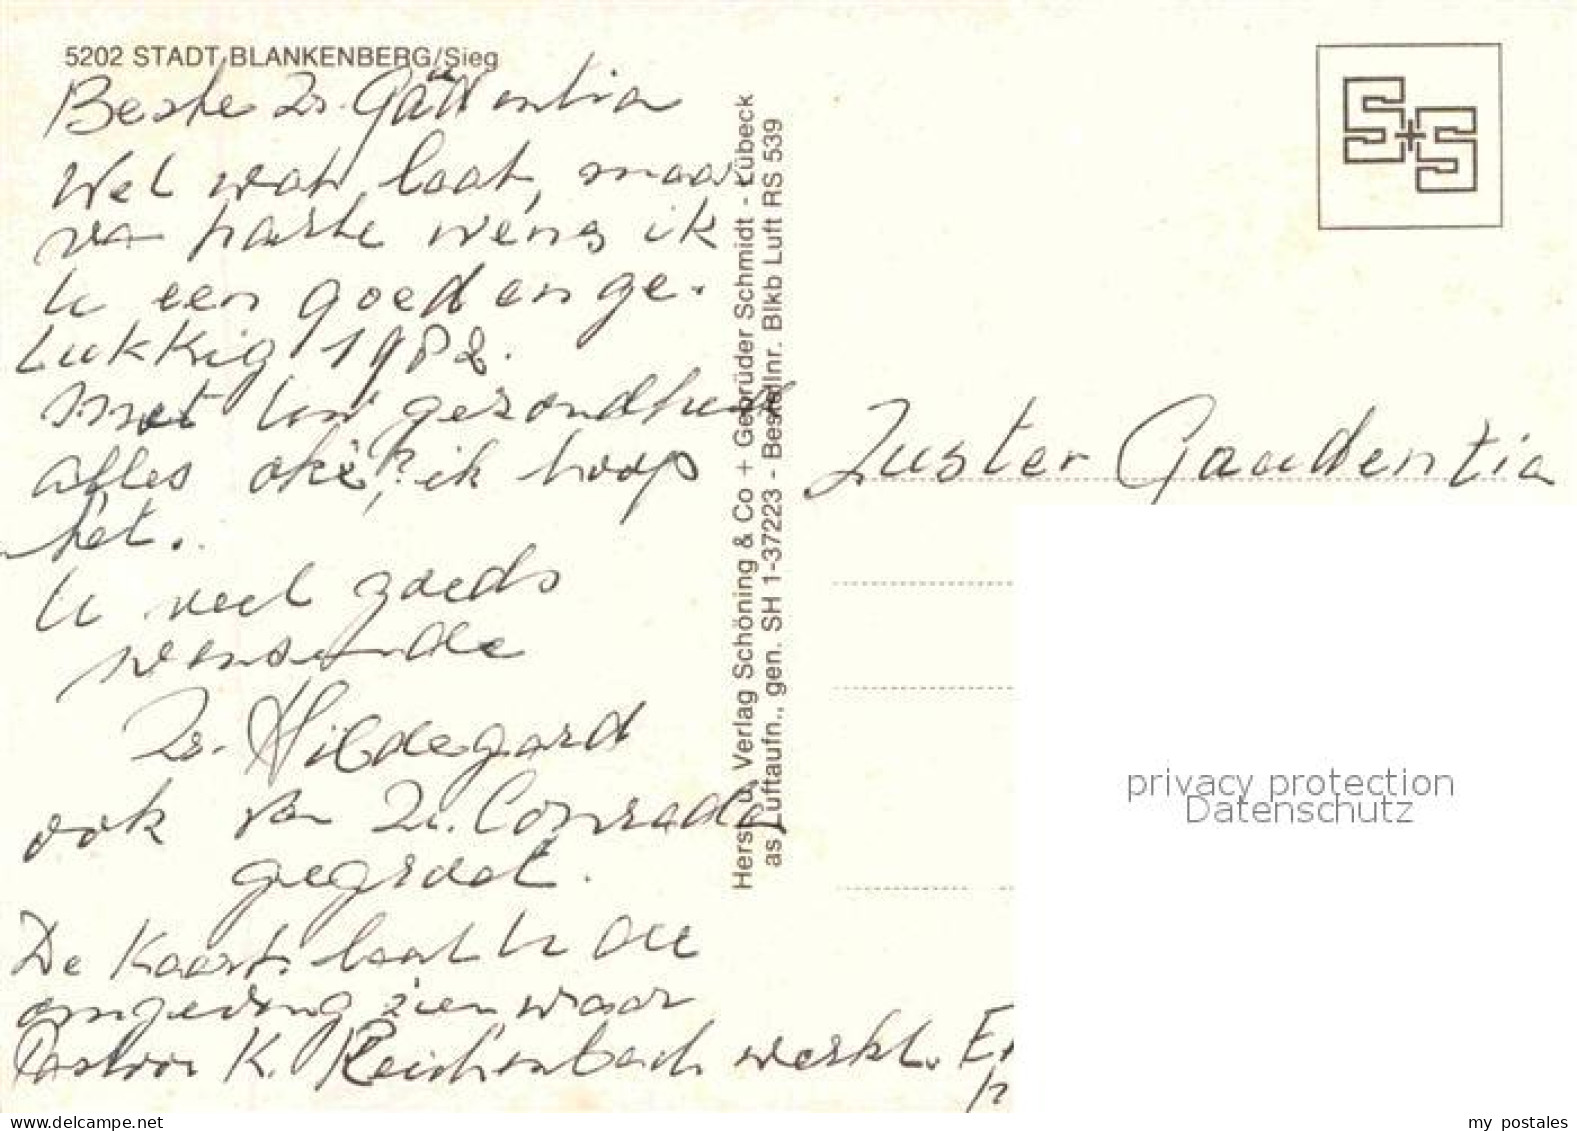 5202 STADT BLANKENBERG/Sieg
Beste Zr. Gaudentia
Wel wat laat, maar
van harte wens ik
U een goed en ge-
lukkig 1982.
Met Uw gezondheid
alles oké? ik hoop
het.
U veel goeds
wensende
Zr. Hildegard
ook van Zr. Conrada
gegroet.
De Kaart laat U de
omgeving zien waar
Pastoor K. Reichenbach werkt.
Herst. u. Verlag Schöning & Co + Gebrüder Schmidt - Lübeck
as Luftaufn., gen. SH 1-37223 - Bestellnr. Blkb Luft RS 539
S+S
Zuster Gaudentia
privacy protection
Datenschutz
my postales